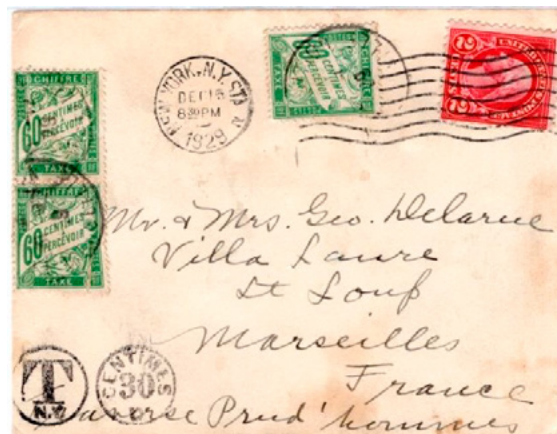 CHIFFRE
60
CENTIMES
A
PERCEVOIR
TAXE
60
CENTIMES
A
PERCEVOIR
TAXE
NEW YORK, N.Y. STA
DEC 15
8 PM
1929
CHIFFRE
60
CENTIMES
PERCEVOIR
TAXE
2
2
Mr. & Mrs. Geo. Delarue
Villa Laure
St Loup
Marseilles
France
Traverse Prud'hommes
T
N.Y.
CENTIMES
30